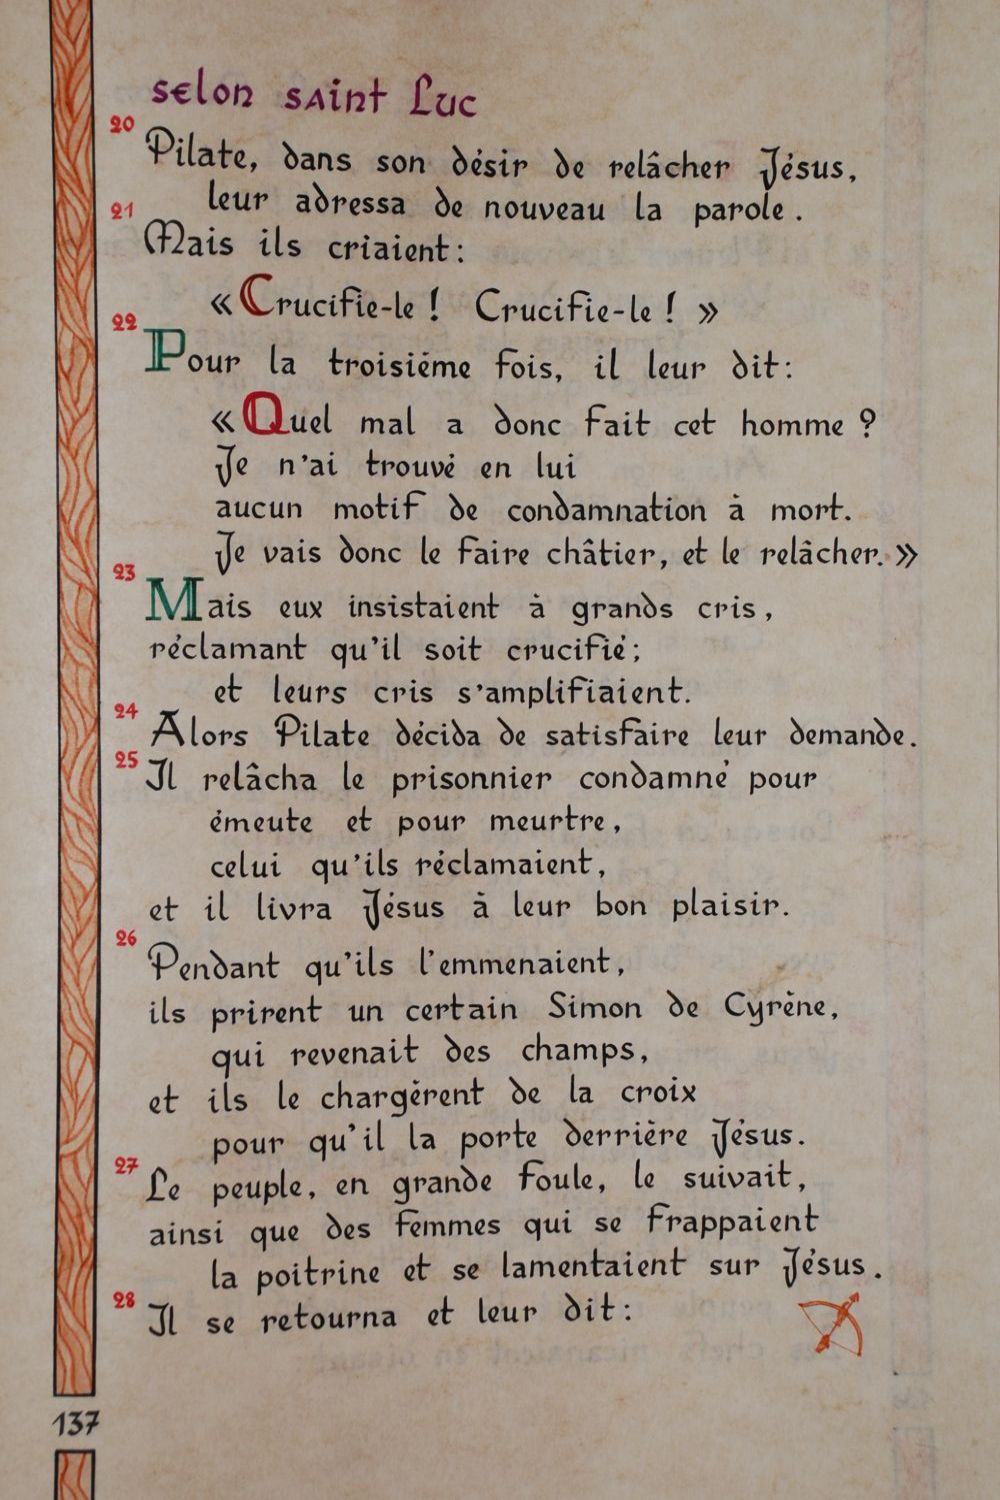 selon saint Luc
20
Pilate, dans son désir de relâcher Jésus,
leur adressa de nouveau la parole.
21
Mais ils criaient :
« Crucifie-le ! Crucifie-le ! »
22
Pour la troisième fois, il leur dit :
« Quel mal a donc fait cet homme ?
Je n'ai trouvé en lui
aucun motif de condamnation à mort.
Je vais donc le faire châtier, et le relâcher. »
23
Mais eux insistaient à grands cris,
réclamant qu'il soit crucifié ;
et leurs cris s'amplifiaient.
24
Alors Pilate décida de satisfaire leur demande.
25
Il relâcha le prisonnier condamné pour
émeute et pour meurtre,
celui qu'ils réclamaient,
et il livra Jésus à leur bon plaisir.
26
Pendant qu'ils l'emmenaient,
ils prirent un certain Simon de Cyrène,
qui revenait des champs,
et ils le chargèrent de la croix
pour qu'il la porte derrière Jésus.
27
Le peuple, en grande foule, le suivait,
ainsi que des femmes qui se frappaient
la poitrine et se lamentaient sur Jésus.
28
Il se retourna et leur dit :
137